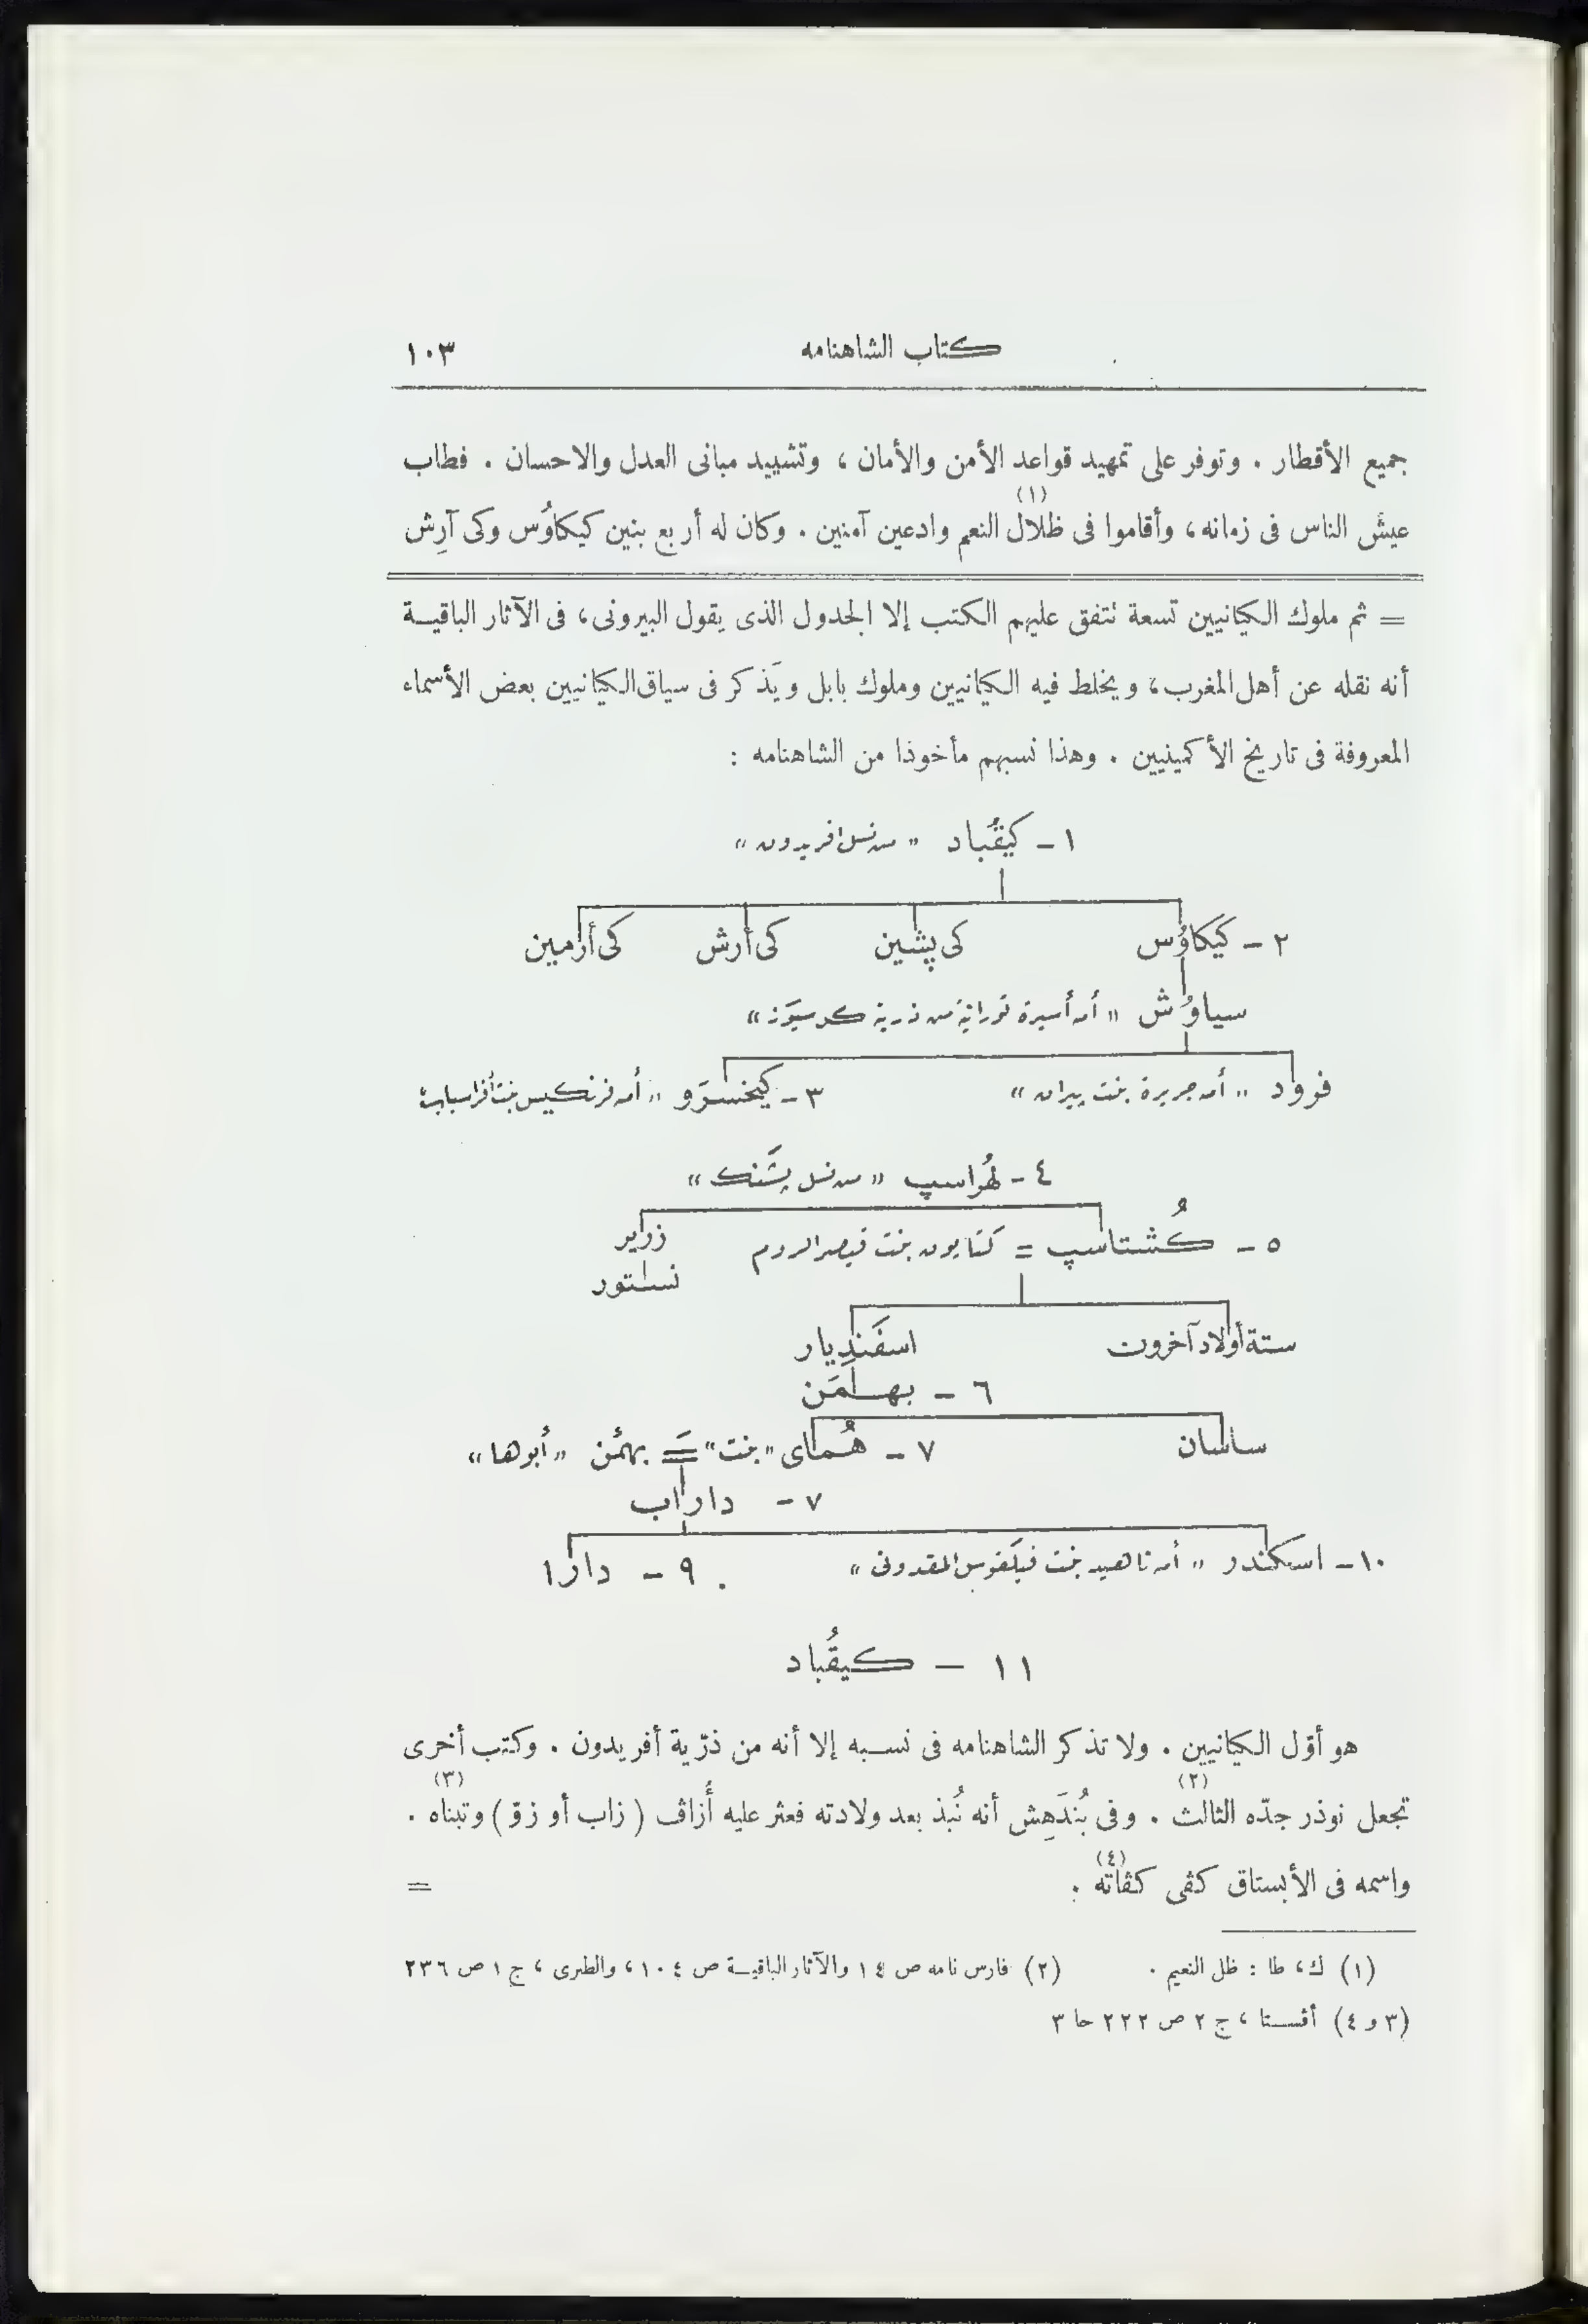 كتاب الشاهنامه ١٠٣
جميع الأقطار . وتوفر على تمهيد قواعد الأمن والأمان ، وتشييد مبانى العدل والاحسان . فطاب
عيش الناس فى زمانه ، وأقاموا فى ظلال (١) النعم وادعين آمنين . وكان له أربع بنين كيكاوُس وكى آرِش
= ثم ملوك الكيانيين تسعة نتفق عليهم الكتب إلا الجدول الذى يقول البيرونى ، فى الآثار الباقيـة
أنه نقله عن أهل المغرب ، ويخلط فيه الكيانيين وملوك بابل ويَذكر فى سياق الكيانيين بعض الأسماء
المعروفة فى تاريخ الأكمينيين . وهذا نسبهم مأخوذا من الشاهنامه :
١ - كيقُباد « من نسل افريدون »
٢ - كَيكاوُس كى پشين كى أرش كى أرمين
سياوُش « أمه أسيرة تورانية من ذرية كرسيَوز »
فرود « أمه جريرة بنت پيران » ٣ - كيخسرَو « أمه فرنكيس بنت أفراسياب »
٤ - لهُراسپ « من نسل پشَنك »
٥ - كُشتاسپ = كتايون بنت قيصر الروم زرير
نستور
ستة أولاد آخرون اسفَنديار
٦ - بهـمَن
ساسان ٧ - هُماى « بنت » = بهمَن « أبوها »
٧ - داراب
١٠ - اسكندر « أمه ناهيد بنت فيلَقوس المقدونى » ٩ - دارا
١١ - كيقُباد
هو أوّل الكيانيين . ولا تذكر الشاهنامه فى نسـبه إلا أنه من ذرّية أفريدون . وكتب أخرى
تجعل نوذر جدّه الثالث (٢) . وفى بُندَهِش أنه نُبذ بعد ولادته فعثر عليه أُزاڤ ( زاب أو زوّ ) وتبناه (٣) .
واسمه فى الأبستاق كڤى كڤاتَه (٤) . =
(١) ك ، طا : ظل النعيم . (٢) فارس نامه ص ١٤ والآثار الباقيـة ص ١٠٤ ، والطبرى ، ج ١ ص ٢٣٦
(٣ و ٤) أڤسـتا ، ج ٢ ص ٢٢٢ حا ٣